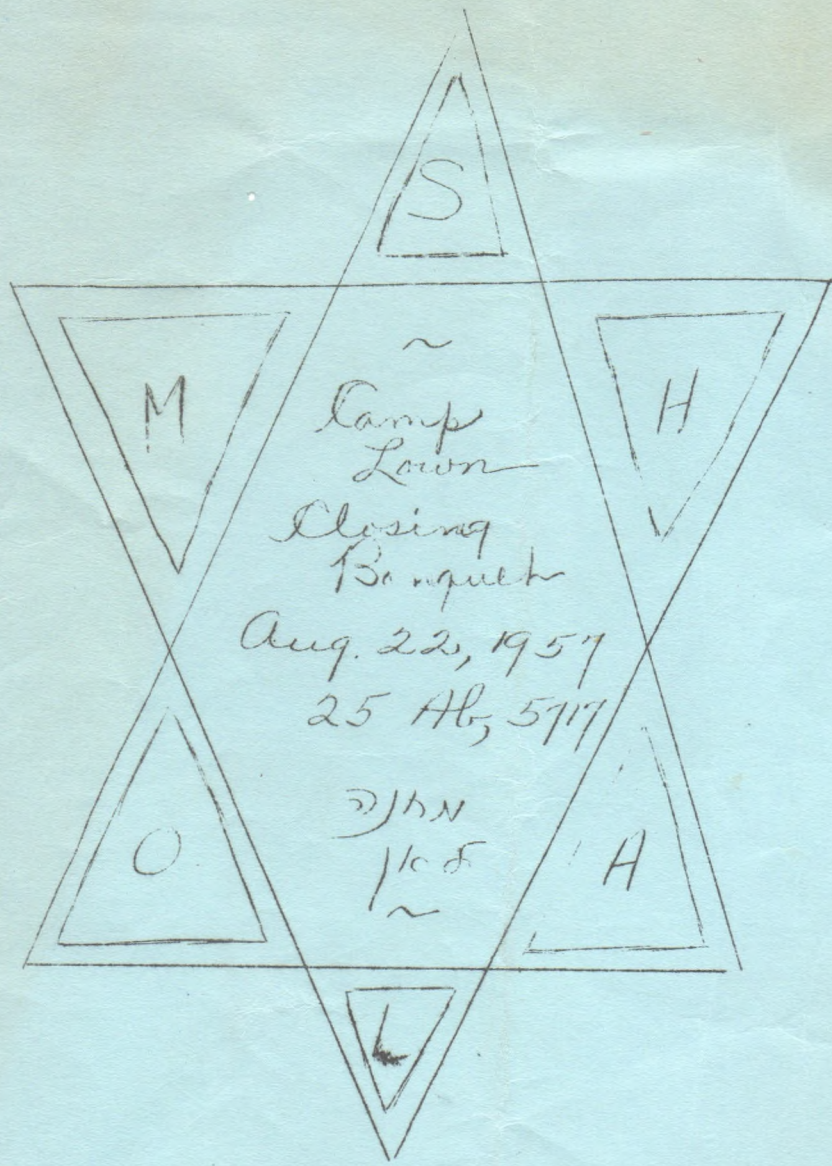 S
M
H
~
Camp
Lown
Closing
Banquet
Aug. 22, 1957
25 Ab, 5717
מחנה
לאן
~
O
A
L